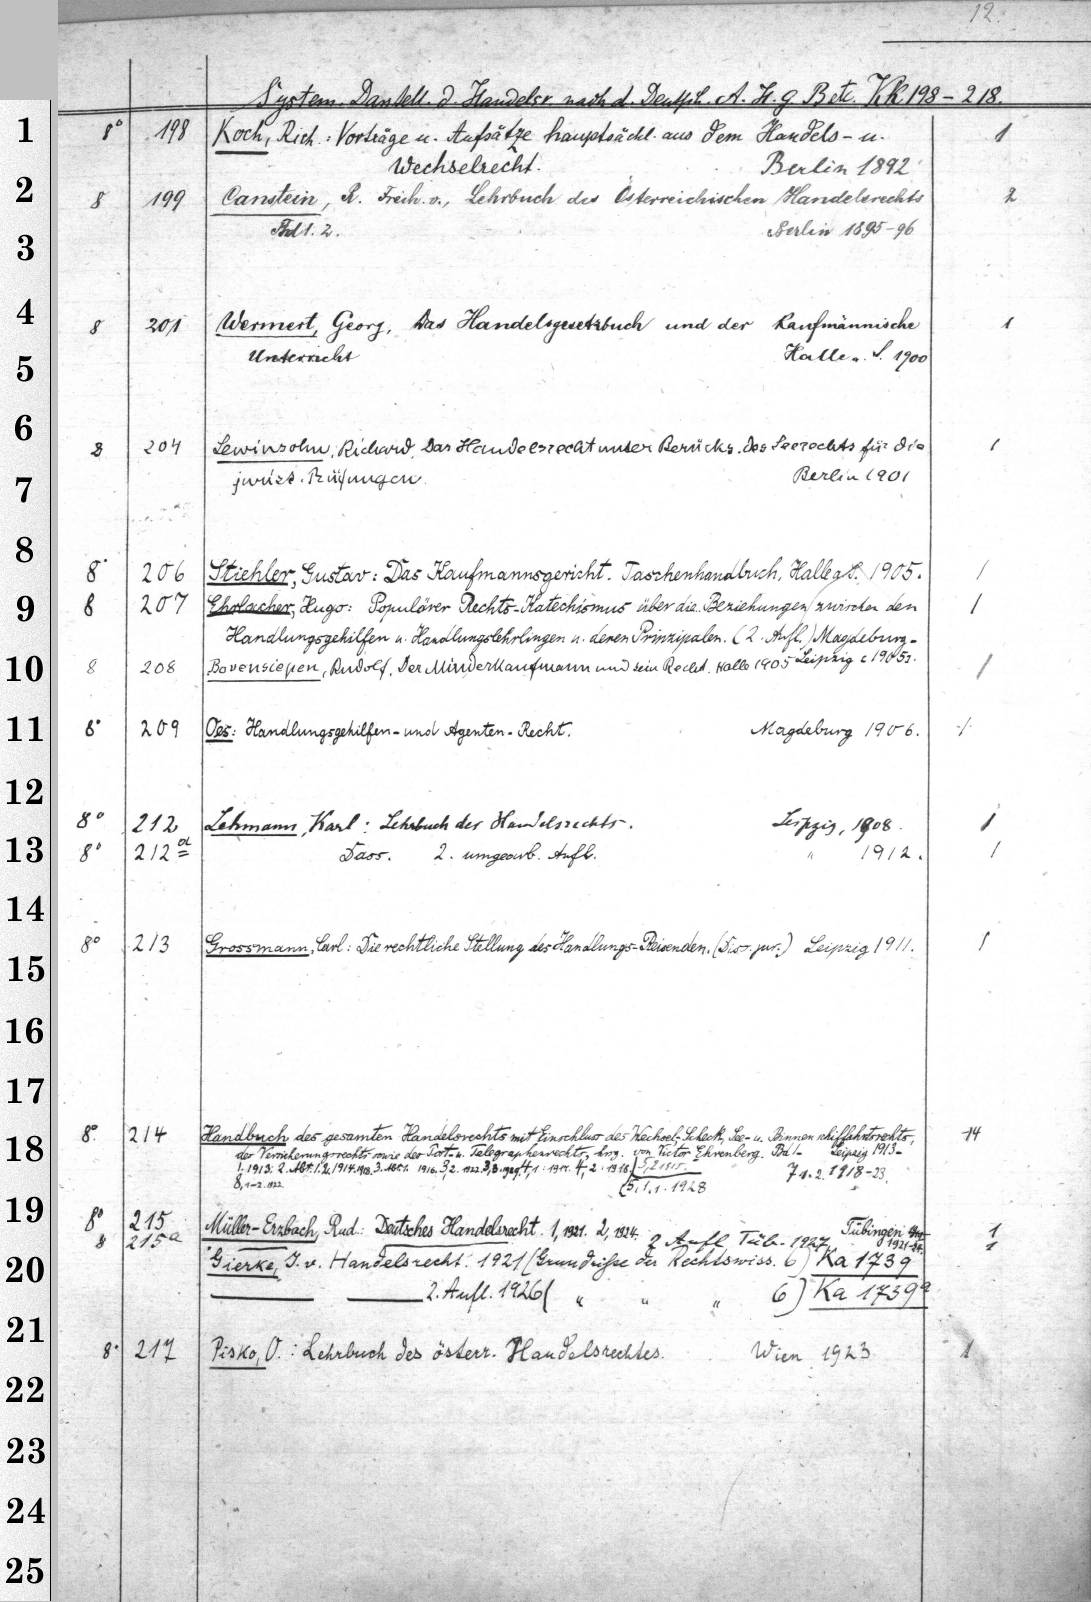 12.
System. Darstell. d. Handelsr nach d. Deutsch. A. H. g Betr. Kk 198 – 218.
1 8° 198 Koch, Rich.: Vorträge u. Aufsätze hauptsächl. aus dem Handels- u. 1
Wechselrecht. Berlin 1892
2 8 199 Canstein, R. Freih. v., Lehrbuch des Österreichischen Handelsrechts 2
Bd 1. 2. Berlin 1895-96
3
4 8 201 Wermert, Georg, Das Handelsgesetzbuch und der Kaufmännische 1
5 Unterricht Halle a. S. 1900
6 8 204 Lewinsohn, Richard, Das Handelsrecht unter Berücks. des Seerechts für die 1
7 jurist. Prüfungen Berlin 1901
8 8° 206 Stiehler, Gustav: Das Kaufmannsgericht. Taschenhandbuch, Halle a. S. 1905. 1
9 8 207 Hugo: Populärer Rechts-Katechismus über die Beziehungen zwischen den 1
Handlungsgehilfen u. Handlungslehrlingen u. deren Prinzipalen. (2. Aufl.) Magdeburg-
Leipzig c 1905.
10 8 208 Bovensiepen, Rudolf, Der Minderkaufmann und sein Recht. Halle 1905 1
11 8° 209 Oes: Handlungsgehilfen- und Agenten-Recht. Magdeburg 1906. 1
12 8° 212 Lehmann, Karl: Lehrbuch des Handelsrechts. Leipzig, 1908. 1
13 8° 212a Dass. 2. umgearb. Aufl. " 1912. 1
14
8° 213 Grossmann, Carl: Die rechtliche Stellung des Handlungs-Reisenden. (Diss. jur.) Leipzig 1911. 1
15
16
17
18 8° 214 Handbuch des gesamten Handelsrechts mit Einschluss des Wechsel-, Scheck-, See- u. Binnenschiffahrtsrechts, 14
des Versicherungsrechts sowie des Post- u. Telegraphenrechts, hrsg. von Victor Ehrenberg. Bd 1- Leipzig 1913-
1. 1913. 2. Abt. 1. 2. 1914. 1918. 3. Abt. 1. 1916. 3, 2. 1922. 4, 1. 1917. 4, 2. 1918 7 1. 2. 1918-23.
8, 1-2. 1922. 5, 1, 1. 1928
19 8° 215 Müller-Erzbach, Rud.: Deutsches Handelsrecht. 1, 1921. 2, 1924. Tübingen 1921-24. 1
8 215a 2 Aufl Tüb. 1927 1
20 Gierke, J. v. Handelsrecht. 1921 (Grundrisse der Rechtswiss. 6) Ka 1739
2. Aufl. 1926 ( " " " 6) Ka 1739a
21 8° 217 Pisko, O.: Lehrbuch des österr. Handelsrechtes. Wien 1923 1
22
23
24
25